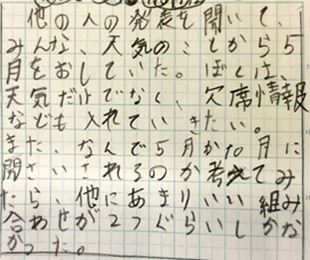 他の人の発表を聞いて、
みんな、天気のことから5
月をおしていた。ぼくは、
天気だけでなく、欠席情報
なども入れていきたい。
また、なんで5月か10月に
開さいされるのか考えてみ
たら、他にあまりいい組み
合わせが2つぐらいしかな
かった。